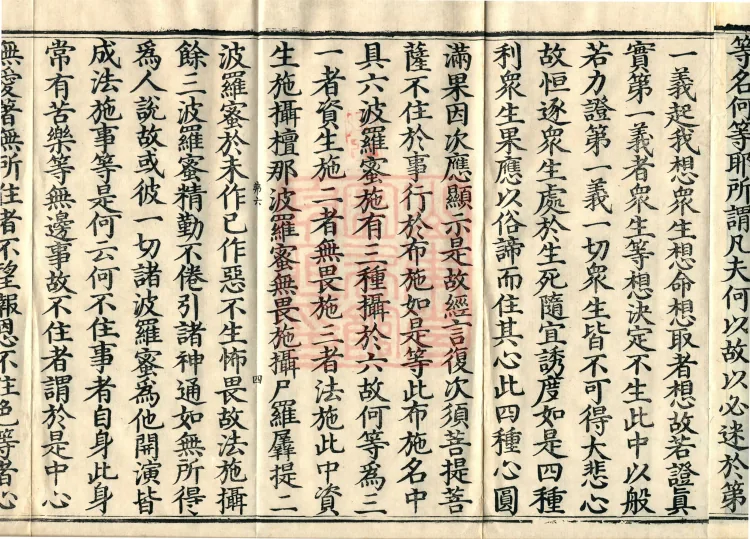 等名何等耶所謂凡夫何以故以必迷於第
一義起我想衆生想命想取者想故若證眞
實第一義者衆生等想決定不生此中以般
若力證第一義一切衆生皆不可得大悲心
故恒逐衆生處於生死隨宜誘度如是四種
利衆生果應以俗諦而住其心此四種心圓
滿果因次應顯示是故經言復次須菩提菩
薩不住於事行於布施如是等此布施名中
具六波羅蜜施有三種攝於六故何等為三
一者資生施二者無畏施三者法施此中資
生施攝檀那波羅蜜無畏施攝尸羅羼提二
第六 四
波羅蜜於未作已作惡不生怖畏故法施攝
餘三波羅蜜精勤不倦引諸神通如無所得
為人說故或彼一切諸波羅蜜為他開演皆
成法施事等是何云何不住事者自身此身
常有苦樂等無邊事故不住者謂於是中心
無愛著無所住者不望報恩不住色等者心